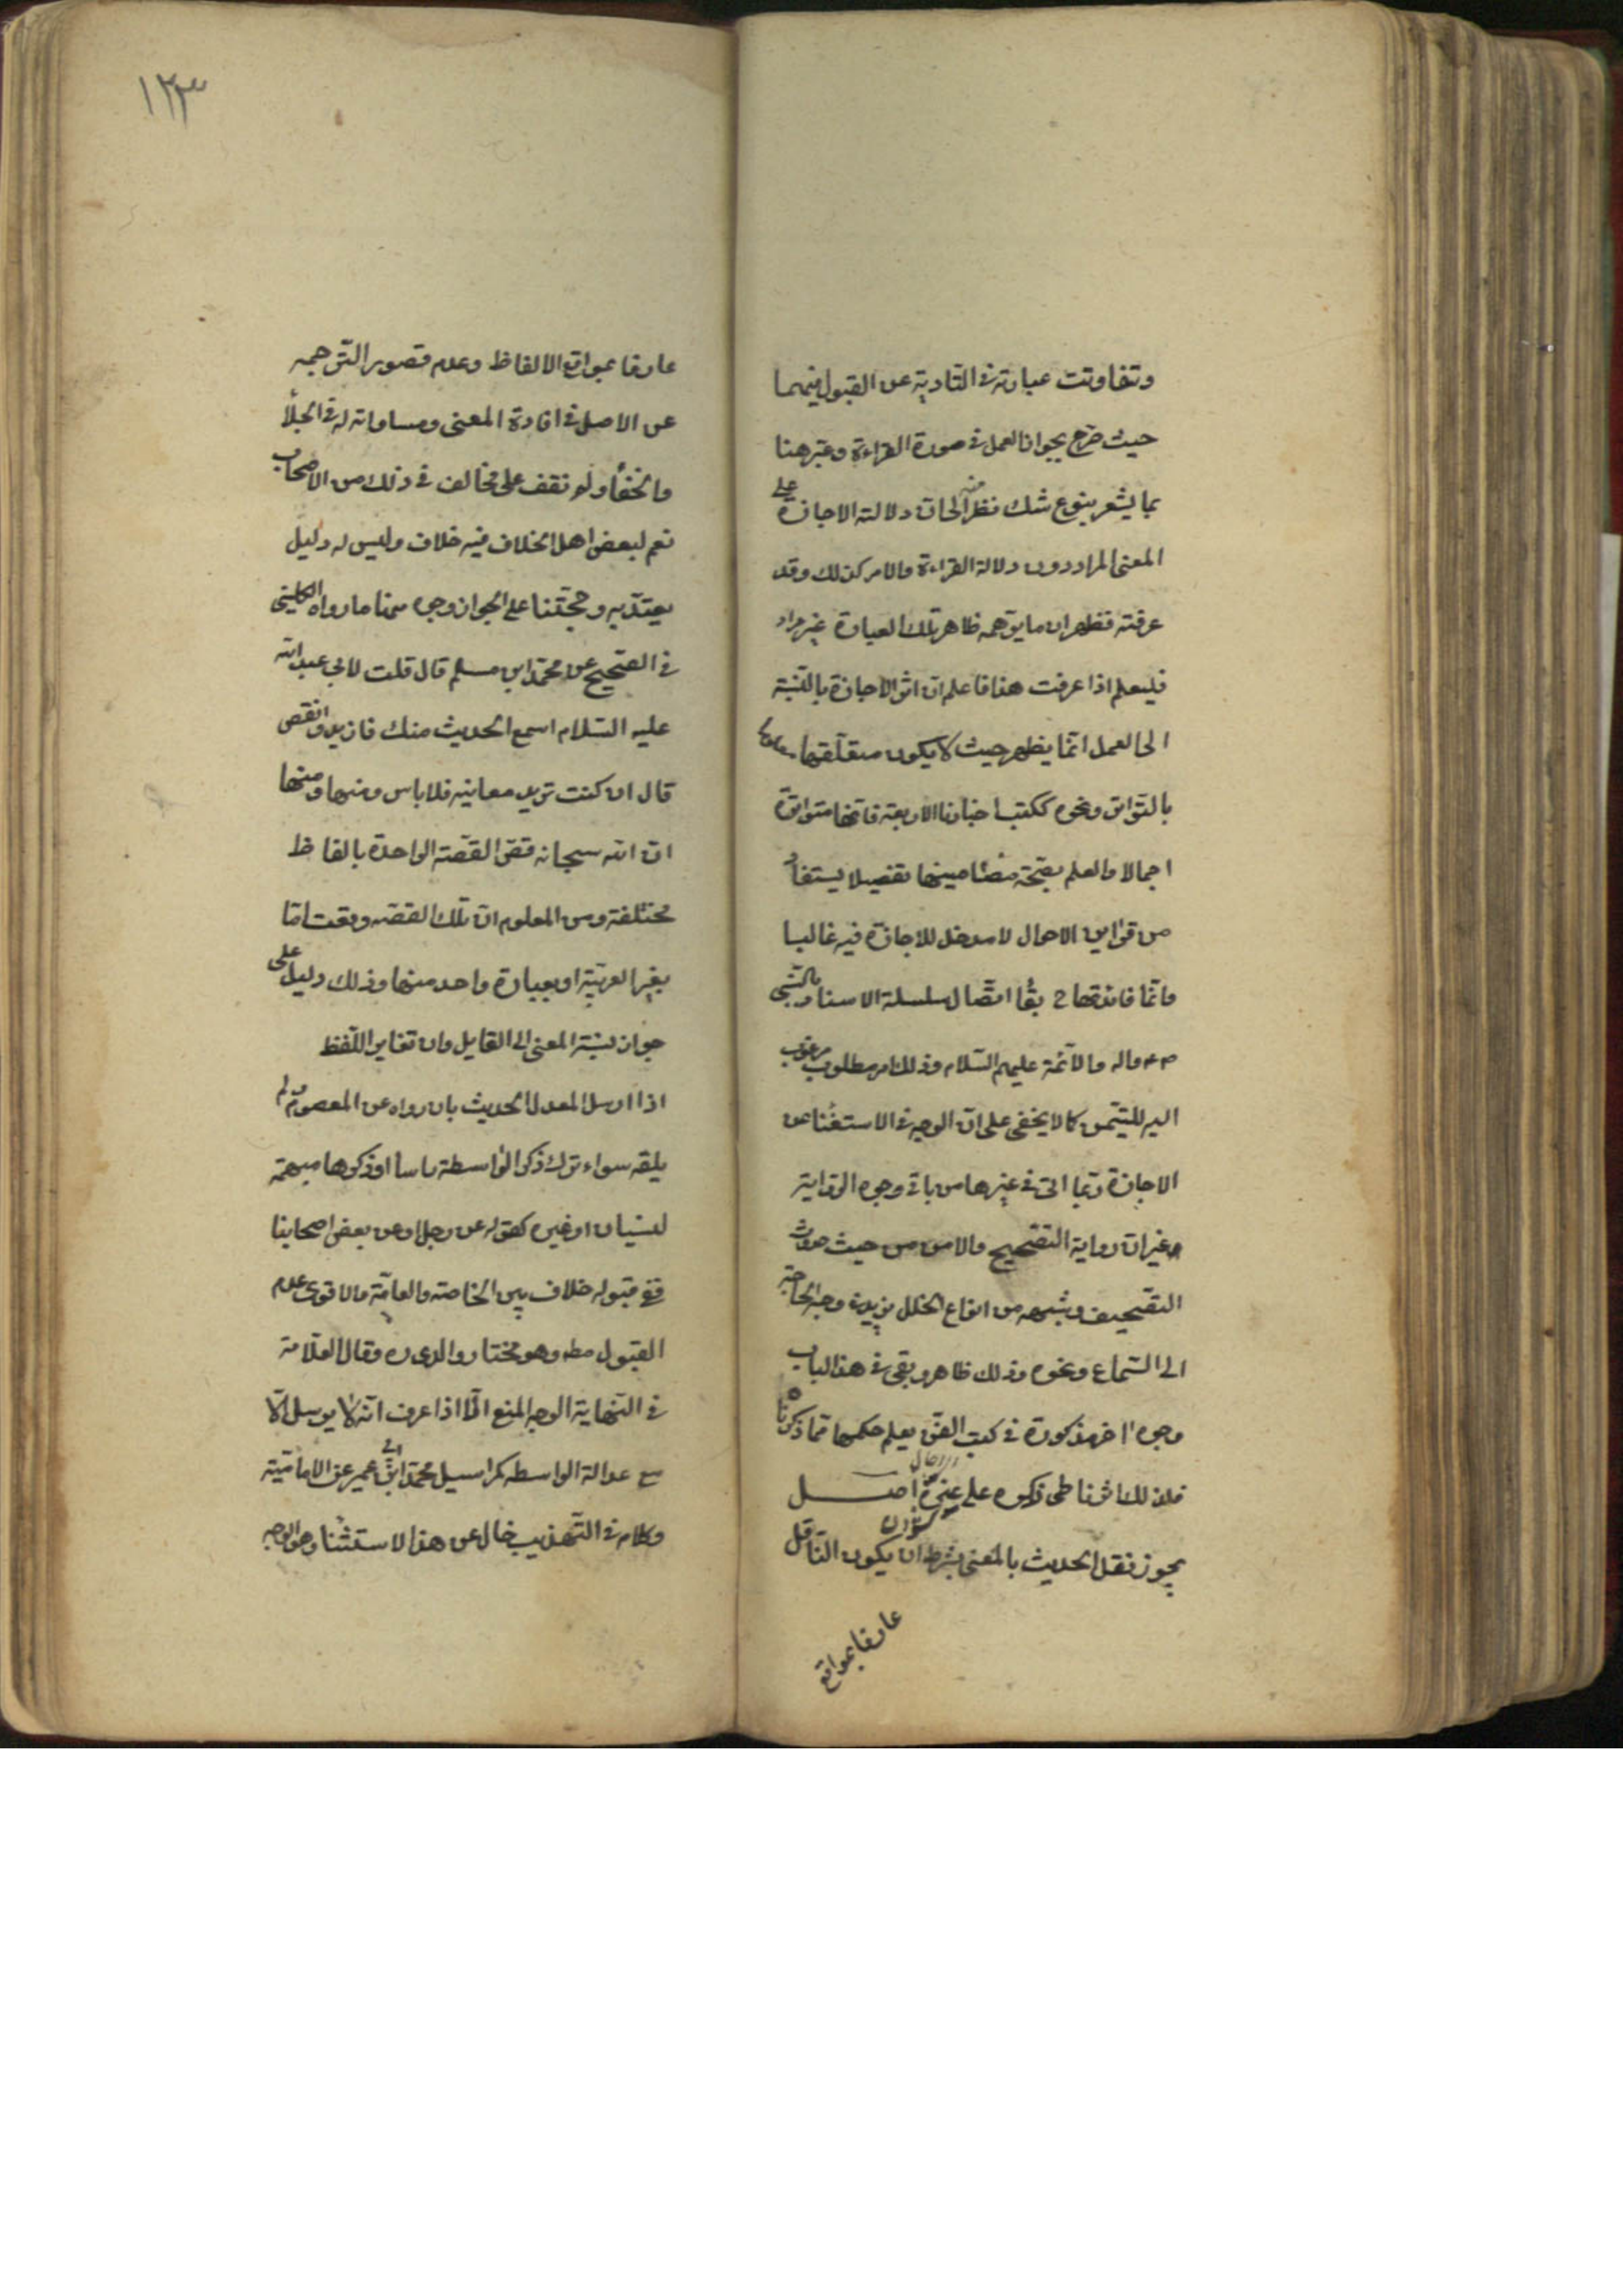 وتفاوتت عبارته في التادية عن القبول فيهما
حيث صرح بجواز العمل في صورة القراءة وعبر هنا
بما يشعر بنوع شك نظرا منه الى ان دلالة الاجازة على
المعنى المراد دون دلالة القراءة والامر كذلك وقد
عرفته فظهر ان ما يوهمه ظاهر تلك العبارة غير مراد
فليعلم اذا عرفت هذا فاعلم ان اثر الاجازة بالنسبة
الى العمل انما يظهر حيث لا يكون متعلقها معلوما
بالتواتر ونحوه ككتب اخبارنا الاربعة فانها متواترة
اجمالا والعلم بصحة مضامينها تفصيلا يستفاد
من قراين الاحوال لا مدخل للاجازة فيه غالبا
وانما فائدتها ح بقاء اتصال سلسلة الاسناد بالنبي
ص واله والائمة عليهم السلام وذلك امر مطلوب مرغوب
اليه للتيمن كما لا يخفى على ان الوجه في الاستغناء عن
الاجازة ربما اتى في غيرها من باقي وجوه الرواية
غير ان رواية التصحيح والامن من حيث حدوث
التصحيف وشبهه من انواع الخلل يزيد في وجه الحاجة
الى السماع ونحوه وذلك ظاهر وبقى في هذا الباب
وجوه اخر مذكورة في كتب الفن يعلم حكمها مما ذكرناه
فلذلك اثرنا طى ذكره على غيره اصل
يجوز نقل الحديث بالمعنى بشرط ان يكون الناقل
عارفا بمواقع
١٢٣
عارفا بمواقع الالفاظ وعدم قصور الترجمه
عن الاصل في افادة المعنى ومساواته له في الجلاء
والخفاء ولم نقف على مخالف في ذلك من الاصحاب
نعم لبعض اهل الخلاف فيه خلاف وليس له دليل
يعتد به وحجتنا على الجواز وجوه منها ما رواه الكليني
في الصحيح عن محمد ابن مسلم قال قلت لابي عبد الله
عليه السلام اسمع الحديث منك فازيد وانقص
قال ان كنت تريد معانيه فلا باس ومنها ومنها
ان الله سبحانه قص القصة الواحدة بالفاظ
مختلفة ومن المعلوم ان تلك القصه وقعت اما
بغير العربية او بعبارة واحد منها وذلك دليل على
جواز نسبة المعنى الى القايل وان تغاير اللفظ
اذا ارسل المعدل الحديث بان رواه عن المعصوم ولم
يلقه سواء ترك ذكر الواسطة راسا او ذكرها مبهمة
لنسيان او غيره كقوله عن رجل او عن بعض اصحابنا
ففي قبوله خلاف بين الخاصة والعامة والاقوى عدم
القبول مطه وهو مختار والدى ره وقال العلامة
في النهاية الوجه المنع الا اذا عرف انه لا يرسل الا
مع عدالة الواسطه كمراسيل محمد ابن ابي عمير عن الامامية
وكلامه في التهذيب خال عن هذا الاستثناء وهو الوجه